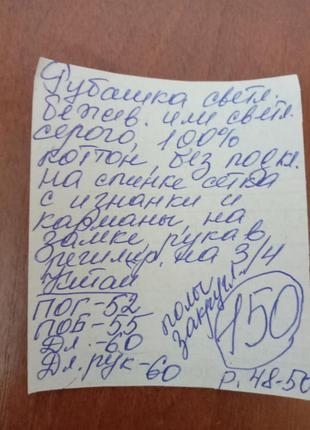 Рубашка светл.
бежев. или светл.
серого, 100%
коттон, без подкл.
на спинке сетка
с изнанки и
карманы на
замке, рукав
регулир. на 3/4
Китай
ПОГ-52
ПОБ-55
Дл.-60
Дл. рук-60
полы
закругл.
150
р. 48-50